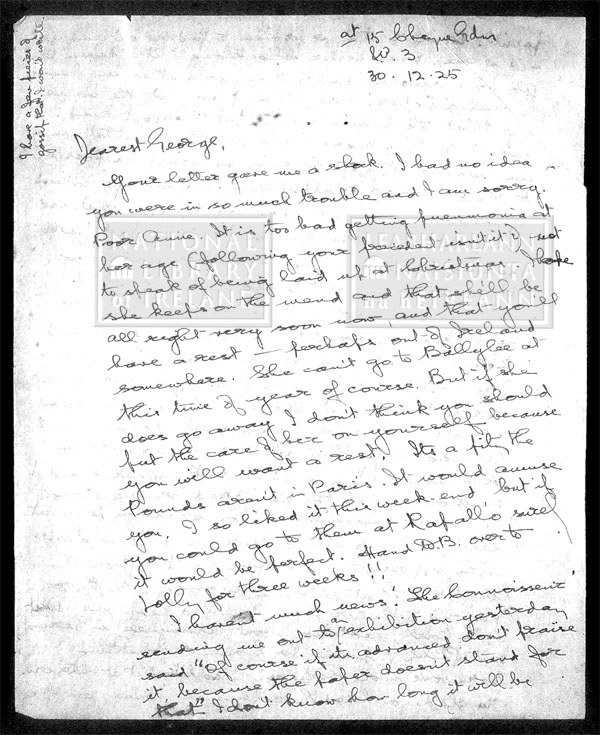 I have a few pieces of
gossip that I won't write.
at 15 Cheyne Gdns
SW. 3
30. 12. 25
Dearest George,
Your letter gave me a shock. I had no idea
you were in so much trouble and I am sorry.
Poor Anne. It is too bad getting pneumonia at
her age (following your precedent isn't it?) not
to speak of being laid up at Christmas. I hope
she keeps on the mend and that she'll be
all right very soon now, and that you'll
have a rest — perhaps out of Ireland
somewhere. She can't go to Ballylee at
this time of year of course. But if she
does go away I don't think you should
put the care of her on yourself because
you will want a rest. Its a pity the
Pounds aren't in Paris. It would amuse
you. I so liked it this week-end but if
you could go to them at Rapallo surely
it would be perfect. Hand D.B. over to
Lolly for three weeks!!
I haven't much news. 'The Connoisseur'
sending me out to an exhibition yesterday
said "Of course if its advanced don't praise
it because the paper doesn't stand for
that" I don't know how long it will be
NATIONAL
LIBRARY
of IRELAND
LEABHARLANN
NÁISIÚNTA
na hÉIREANN